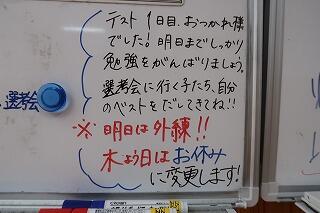 テスト1日目、おつかれ様
でした!明日までしっかり
勉強をがんばりましょう。
選考会に行く子たち、自分
のベストをだしてきてね!!
選考会
※明日は外練!!
木よう日はお休み
に変更します!